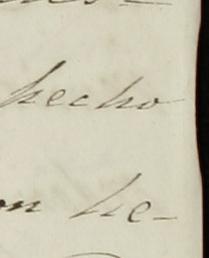 hecho
on he-